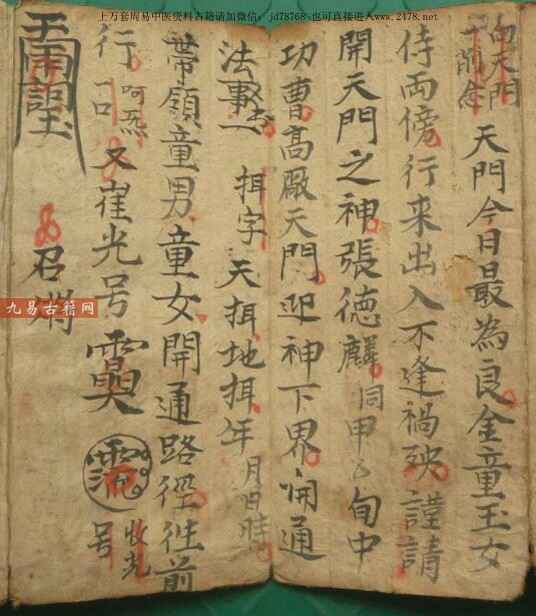 上万套周易中医资料古籍请加微信：jd78768 也可直接进入www.2478.net
向天門
天門今日最為良金童玉女
侍両傍行来出入不逢禍殃謹請
開天門之神張德麟洞甲子旬中
功曹高厰天門迎神下界開通
法事一 揖字 天揖地揖年月日時
帶領童男童女開通路徑徃前
行 又崔光号 收光号
召將
九易古籍网